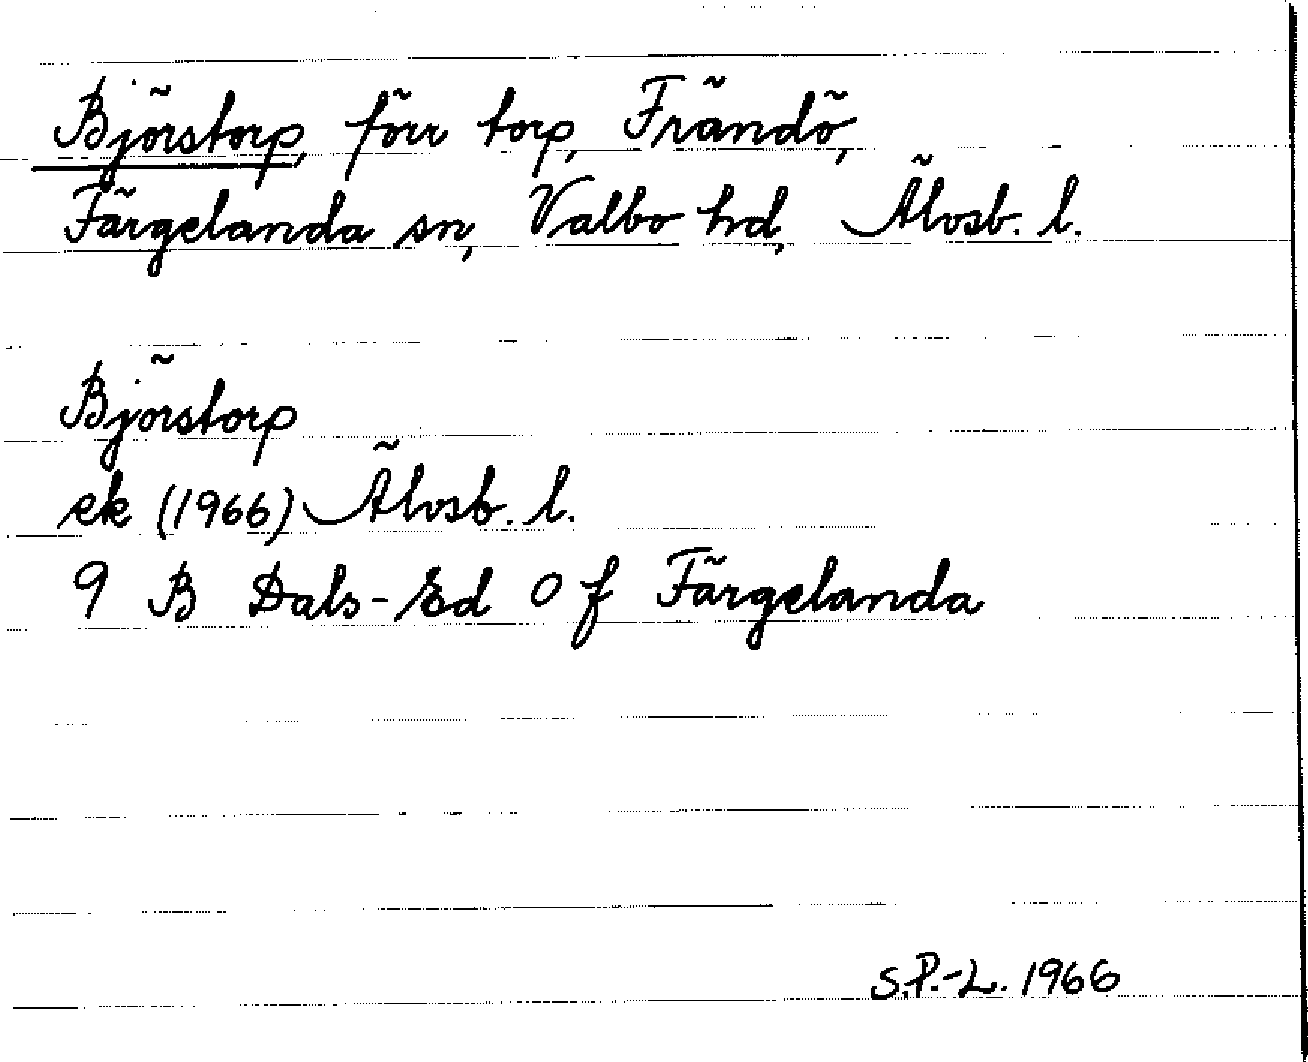 Björstorp, förr torp, Frändö,
Färgelanda sn, Valbo hd, Älvsb. l.
Björstorp
ek (1966) Älvsb. l.
9 B Dals-Ed 0 f Färgelanda
S.P.-L. 1966